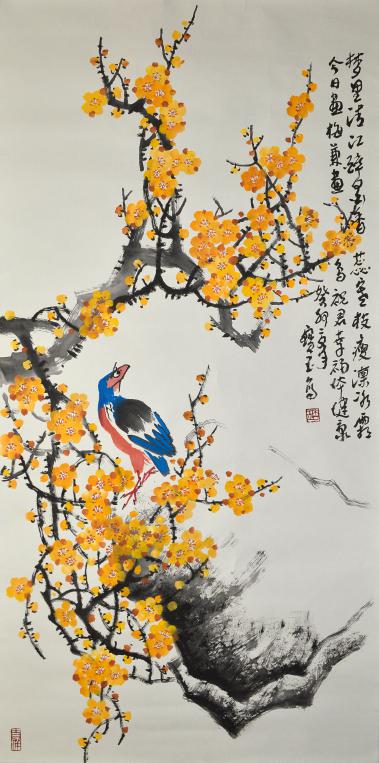 梦里清江醉墨香蕊寒枝瘦凛冰霜
今日画梅兼画鸟祝君幸福体健康
癸卯年
宝玉写
吉祥